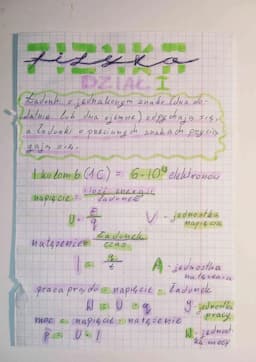 FIZYKA
fizyka
DZIAŁ I
Ładunki o jednakowym znaku (dwa do-
datnie lub dwa ujemne) odpychają się,
a ładunki o przeciwnym znakach przycią
gają się.
1 kulomb (1C) = 6·10¹⁸ elektronów
napięcie = ilość energii / ładunek
U = E / q V - jednostka
napięcia
natężenie = ładunek / czas
I = q / t A - jednostka
natężenia
praca prądu = napięcie · ładunek
W = U · q J - jednostka
pracy
moc = napięcie · natężenie
P = U · I W - jednost
ka mocy